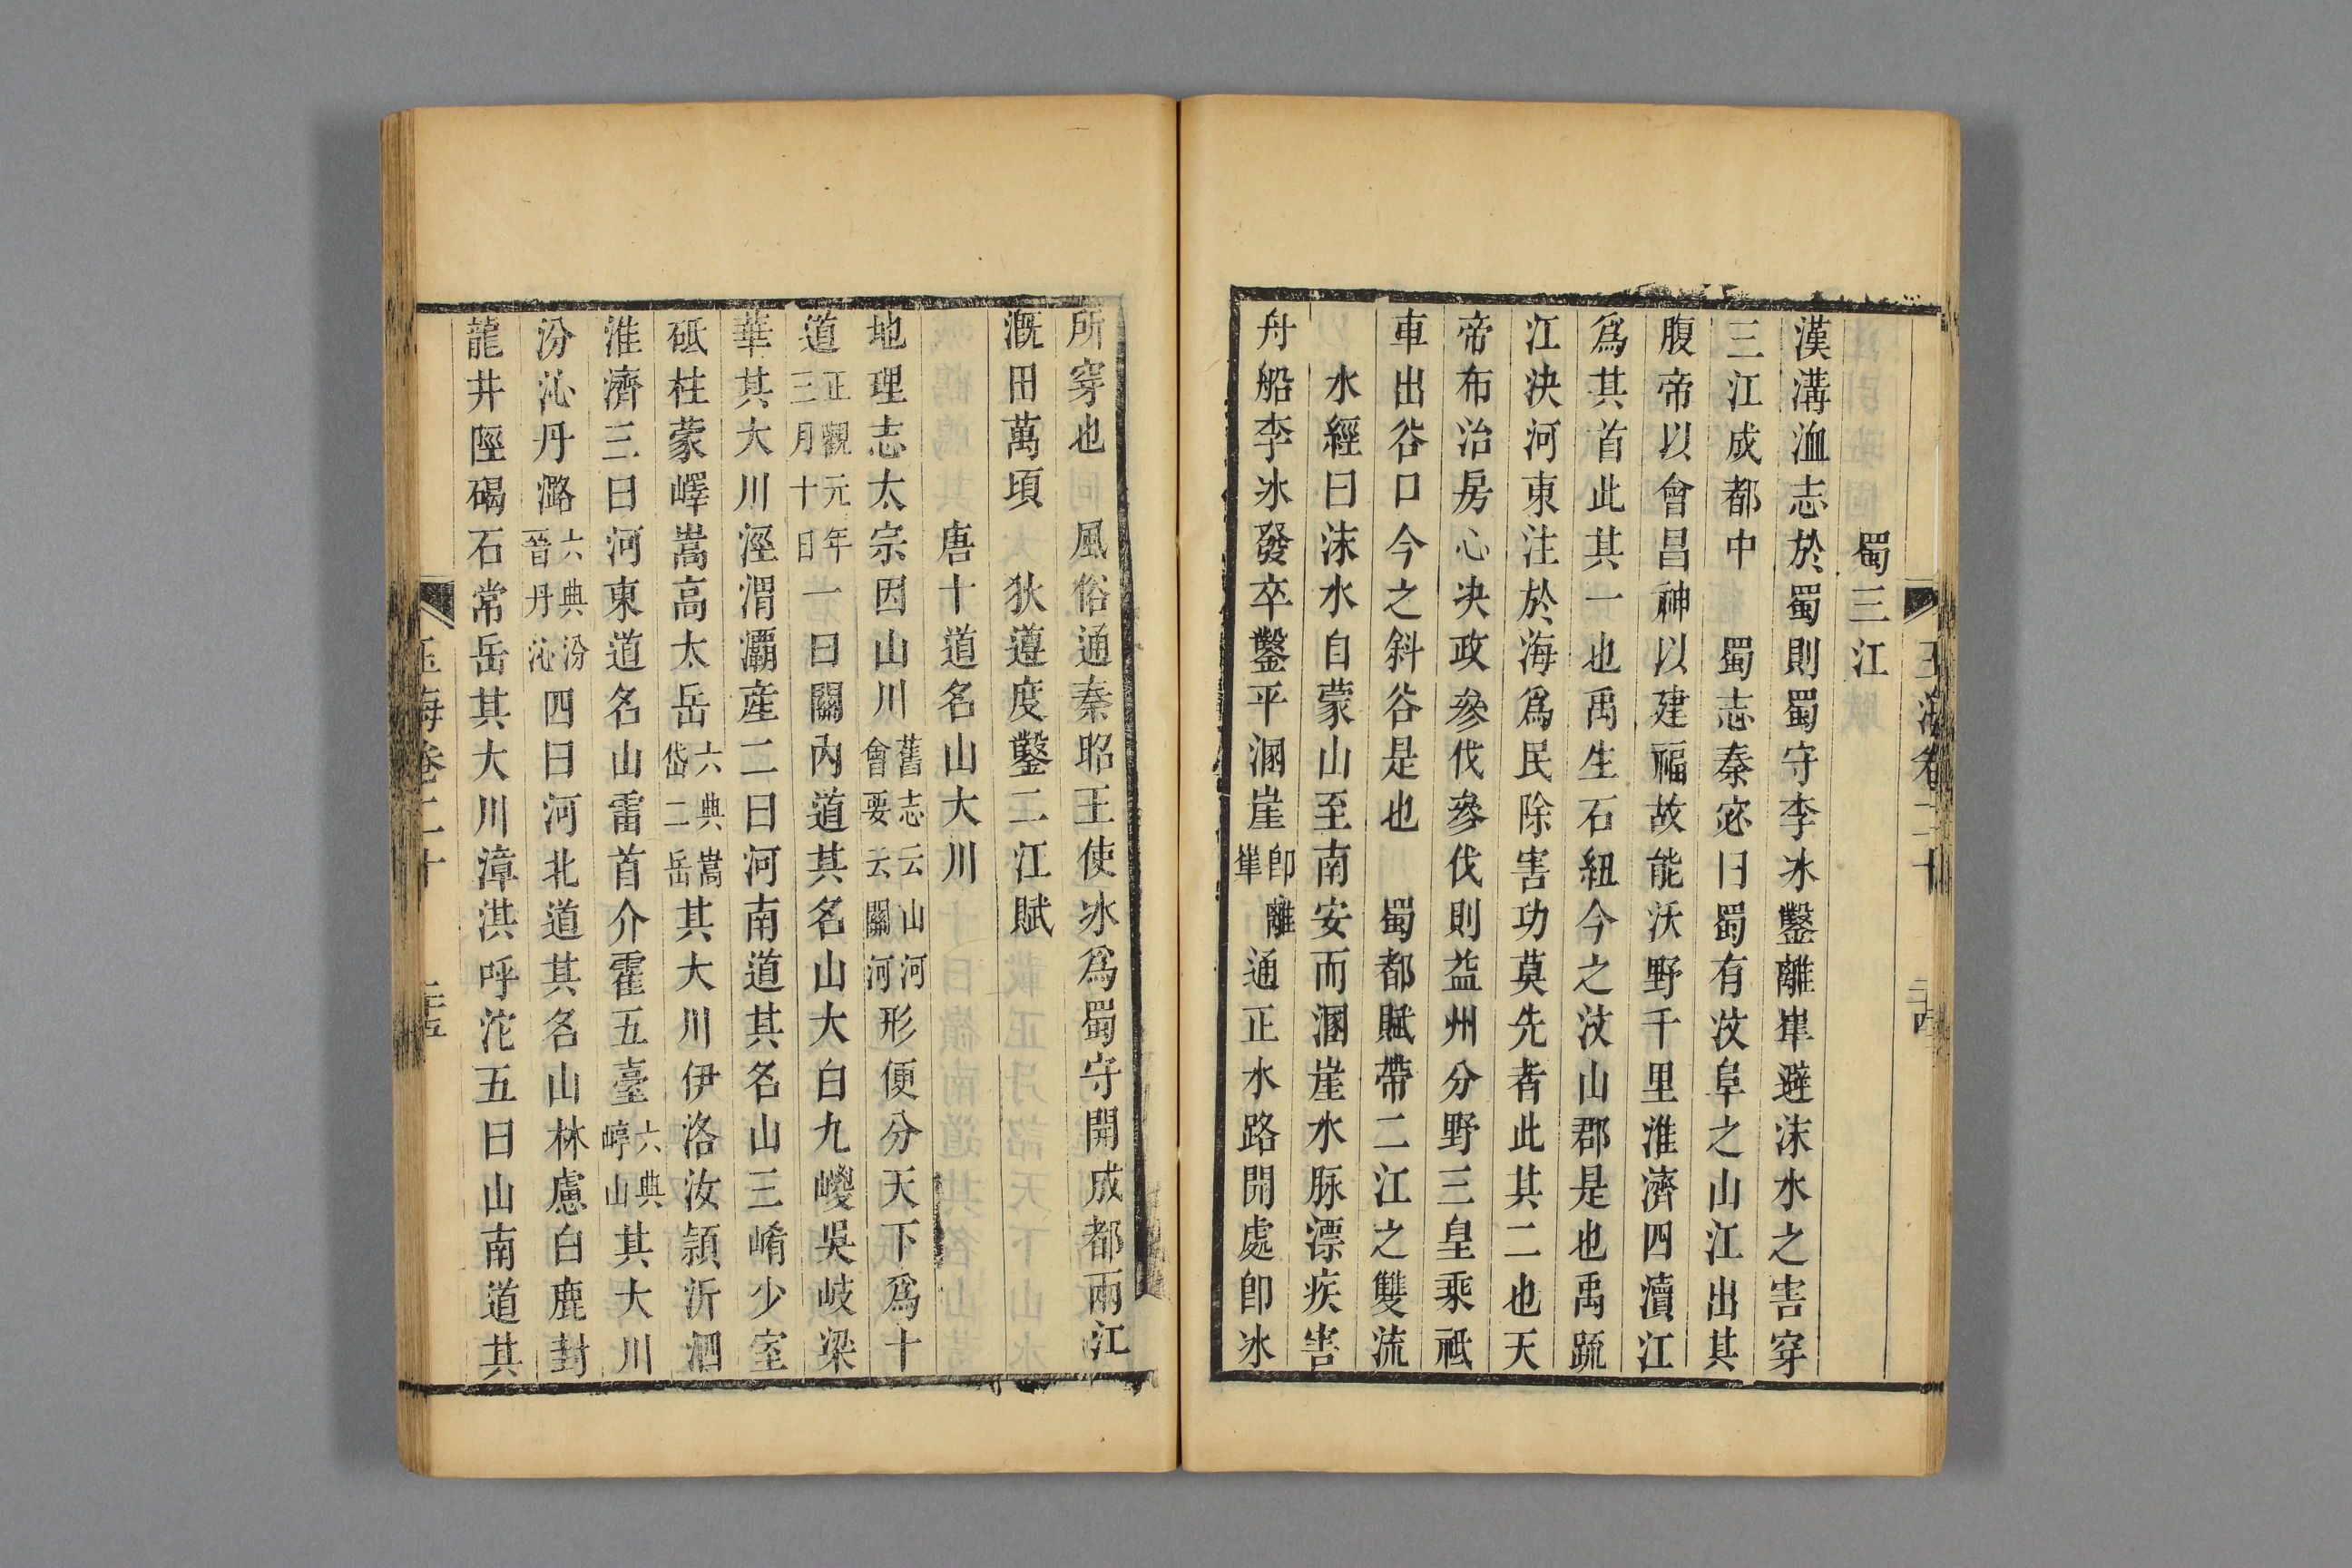 玉海卷二十 二十四
蜀三江
漢溝洫志於蜀則蜀守李冰鑿離㟁避沫水之害穿
三江成都中 蜀志秦宓曰蜀有汶阜之山江出其
腹帝以會昌神以建福故能沃野千里淮濟四瀆江
爲其首此其一也禹生石紐今之汶山郡是也禹䟽
江決河東注於海爲民除害功莫先者此其二也天
帝布治房心決政參伐參伐則益州分野三皇乘祗
車出谷口今之斜谷是也 蜀都賦帶二江之雙流
水經曰沫水自蒙山至南安而溷崖水脉漂疾害
舟船李冰發卒鑿平溷崖卽離㟁通正水路開處卽冰
所穿也 風俗通秦昭王使冰爲蜀守開成都兩江
溉田萬頃 狄遵度鑿二江賦
唐十道名山大川
地理志太宗因山川舊志云山河會要云關河形便分天下爲十
道正觀元年三月十日一曰關內道其名山大白九嵕吳岐梁
華其大川涇渭灞產二曰河南道其名山三崤少室
砥柱蒙嶧嵩高太岳六典嵩岱二岳其大川伊洛汝潁沂泗
淮濟三曰河東道名山雷首介霍五臺六典崞山其大川
汾沁丹潞六典汾晉丹沁四曰河北道其名山林慮白鹿封
龍井陘碣石常岳其大川漳淇呼沱五曰山南道其
玉海卷二十 二十五